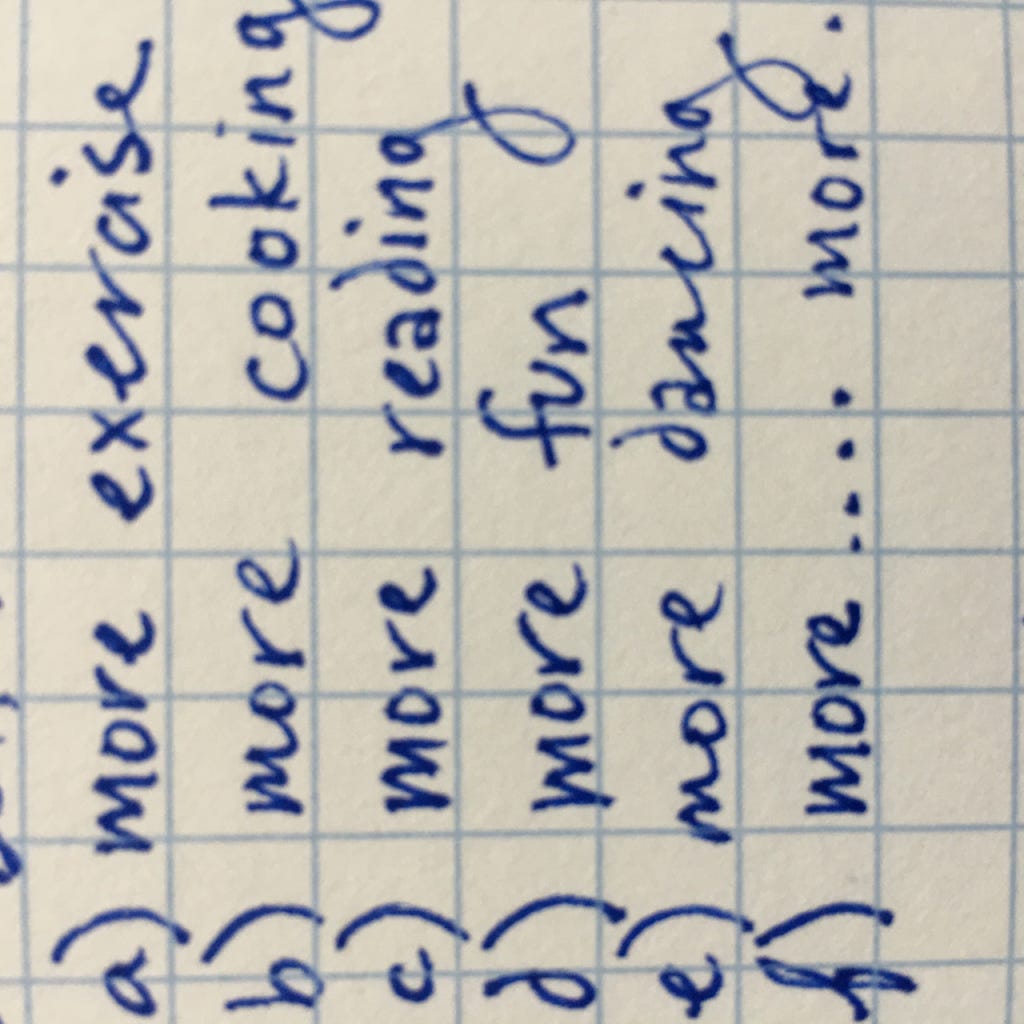 a) more exercise
b) more cooking
c) more reading
d) more fun
e) more dancing
f) more .... more.